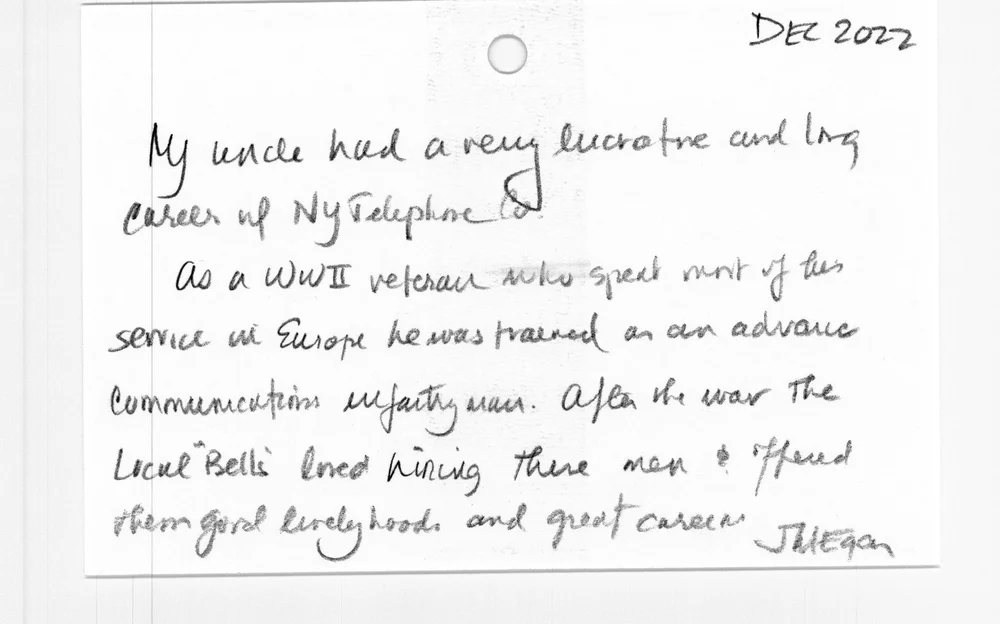 DEC 2022
My uncle had a very lucrative and long
career w/ NY Telephone Co
As a WWII veteran who spent most of his
service in Europe he was trained as an advance
Communications infantry man. After the war The
Local "Bells" loved hiring these men & offered
them good livelyhoods and great careers